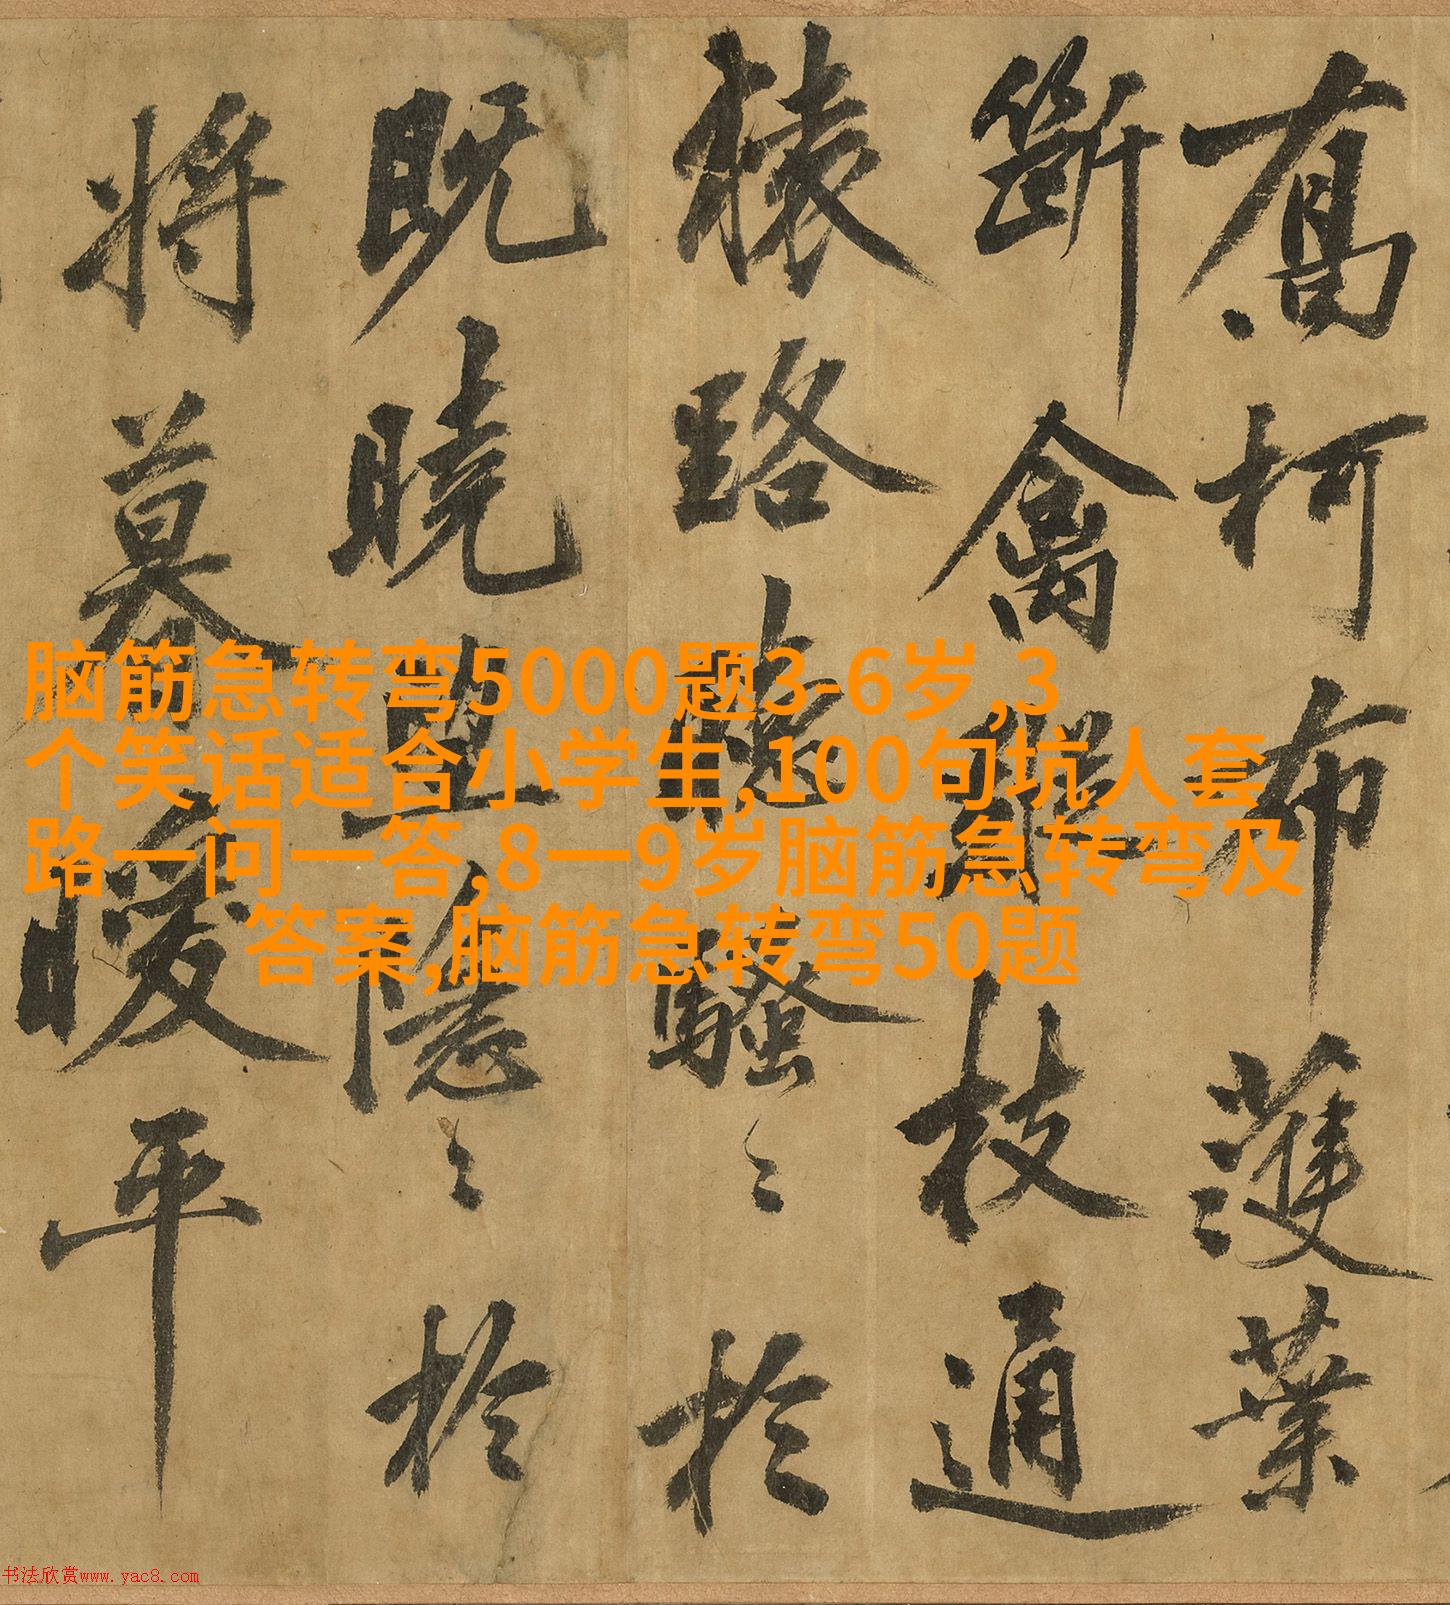 喬柯布濩葉
斷禽枝通
猿路騷〻於
既曉且隱〻於
將暮曖平
脑筋急转弯5000题3-6岁,3
个笑话适合小学生,100句坑人套
路一问一答,8一9岁脑筋急转弯及
答案,脑筋急转弯50题
书法欣赏www.yac8.com